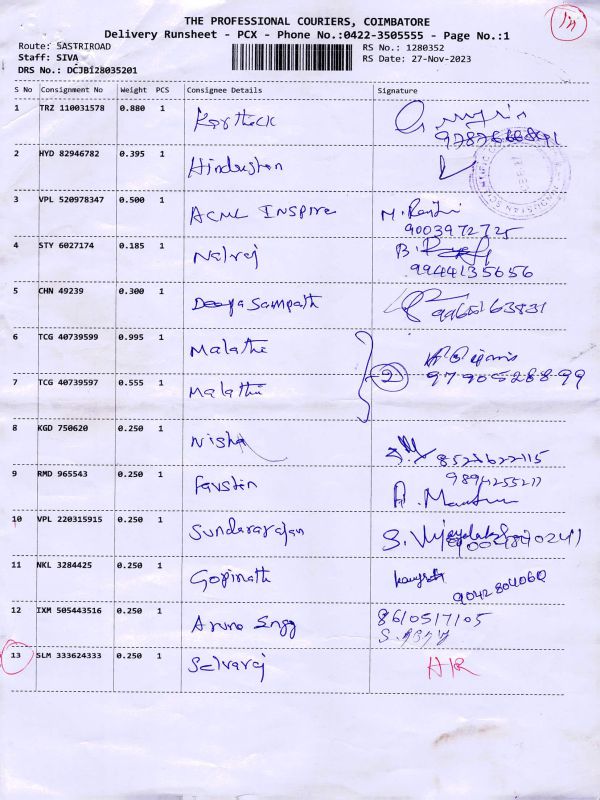 THE PROFESSIONAL COURIERS, COIMBATORE
Delivery Runsheet - PCX - Phone No.:0422-3505555 - Page No.:1
Route: SASTRIROAD
RS No.: 1280352
Staff: SIVA
RS Date: 27-Nov-2023
DRS No.: DCJB128035201
S No Consignment No Weight PCS Consignee Details Signature
1 TRZ 110031578 0.880 1 Karthick
2 HYD 82946782 0.395 1 Hindustan
3 VPL 520978347 0.500 1 ACML INSPIRE M.
9003972725
4 STY 6027174 0.185 1 Natraj B.
9944135656
5 CHN 49239 0.300 1 Deepa Sampath
6 TCG 40739599 0.995 1 Malathi
2 9790528899
7 TCG 40739597 0.555 1 Malathi
8 KGD 750620 0.250 1 Nisha 8527622115
9 RMD 965543 0.250 1 Faustin
10 VPL 220315915 0.250 1 Sundararajan S.
11 NKL 3284425 0.250 1 Gopinath
9042804060
12 IXM 505443516 0.250 1 Aruna Engg 8610517105
13 SLM 333624333 0.250 1 Selvaraj